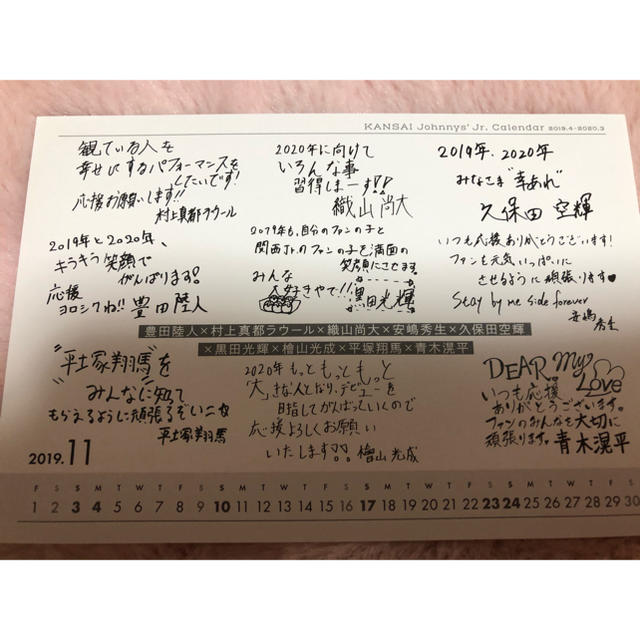 KANSAI Johnnys' Jr. Calendar 2019.4-2020.3
観ている人を
幸せにするパフォーマンスを
したいです!
応援お願いします!!
村上真都ラウール
2020年に向けて
いろんな事
習得しまーす!!
織山尚大
2019年、2020年
みなさま"幸あれ"
久保田空輝
2019年と2020年、
キラキラ笑顔で
がんばります!
応援
ヨロシクね!!豊田陸人
2019年も、自分のファンの子と
関西Jr.のファンの子を満面の
笑顔にさせます。
みんな
大好きやで!!!
黒田光輝
いつも応援ありがとうございます!
ファンを元気いっぱいに
させるように頑張ります♥
Stay by me side forever
安嶋秀生
豊田陸人×村上真都ラウール×織山尚大×安嶋秀生×久保田空輝
×黒田光輝×檜山光成×平塚翔馬×青木滉平
"平塚翔馬"を
みんなに知って
もらえるように頑張るぞい
平塚翔馬
2020年もっともっともっと
大きな人となり、デビューを
目指してがんばっていくので
応援よろしくお願い
いたします!!
檜山光成
DEAR My Love
いつも応援
ありがとうございます。
ファンのみんなを大切に
頑張ります。青木滉平
2019.11
F S S M T W T F S S M T W T F S S M T W T F S S M T W T F S
1 2 3 4 5 6 7 8 9 10 11 12 13 14 15 16 17 18 19 20 21 22 23 24 25 26 27 28 29 30